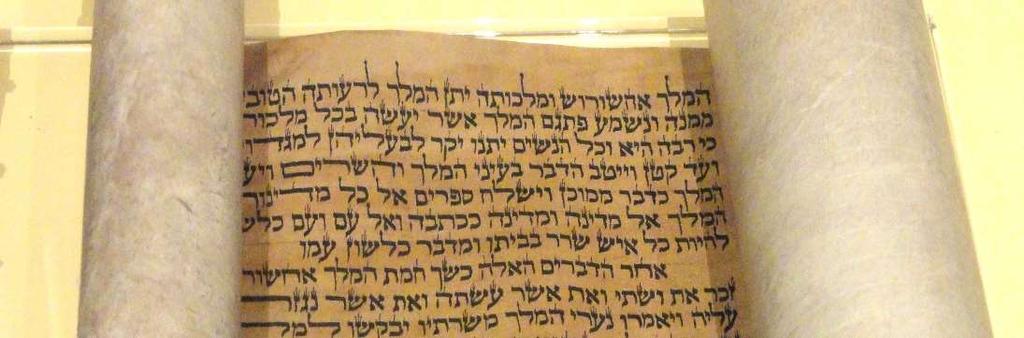 המלך אחשורוש ומלכותה יתן המלך לרעותה הטוב
ממנה ונשמע פתגם המלך אשר יעשה בכל מלכות
כי רבה היא וכל הנשים יתנו יקר לבעליהן למגדו
ועד קטן וייטב הדבר בעיני המלך והשרים ויע
המלך כדבר ממוכן וישלח ספרים אל כל מדינות
המלך אל מדינה ומדינה ככתבה ואל עם ועם כלש
להיות כל איש שרר בביתו ומדבר כלשון עמו
אחר הדברים האלה כשך חמת המלך אחשור
זכר את ושתי ואת אשר עשתה ואת אשר נגזר
עליה ויאמרו נערי המלך משרתיו יבקשו למלך